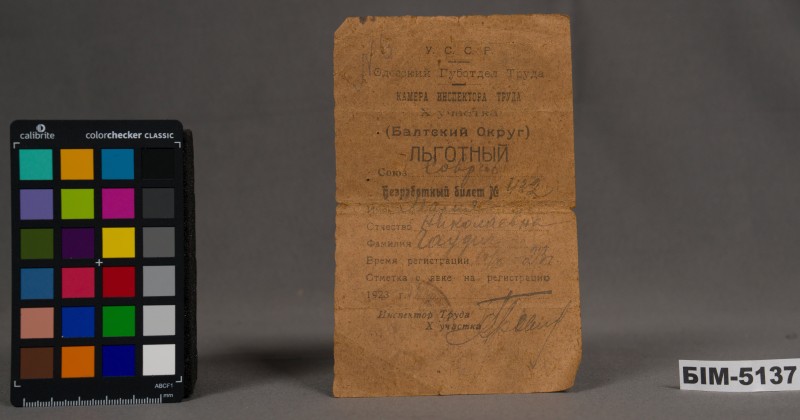 calibrite colorchecker CLASSIC
ABCF1
mm
У. С. С. Р.
Одесский Губотдел Труда
КАМЕРА ИНСПЕКТОРА ТРУДА
X участка
(Балтский Округ)
ЛЬГОТНЫЙ
Союз
Безработный билет № 432
Отчество Николаевна
Фамилия
Время регистрации
Отметка о явке на регистрацию
1923
Инспектор Труда
X участка
БІМ-5137